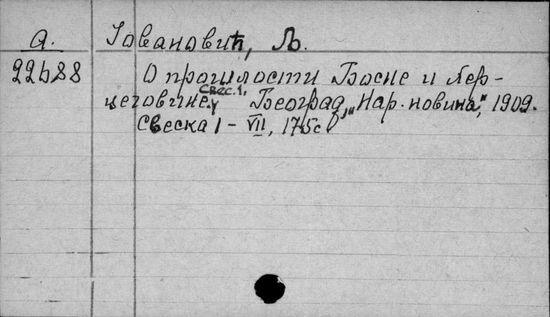 а. Јовановић, Љ.
22688 О прошлости Босне и Хер-
цеговине, Свес. 1. Београд, „Нар. новина", 1909.
Свеска 1 - VII, 175 с